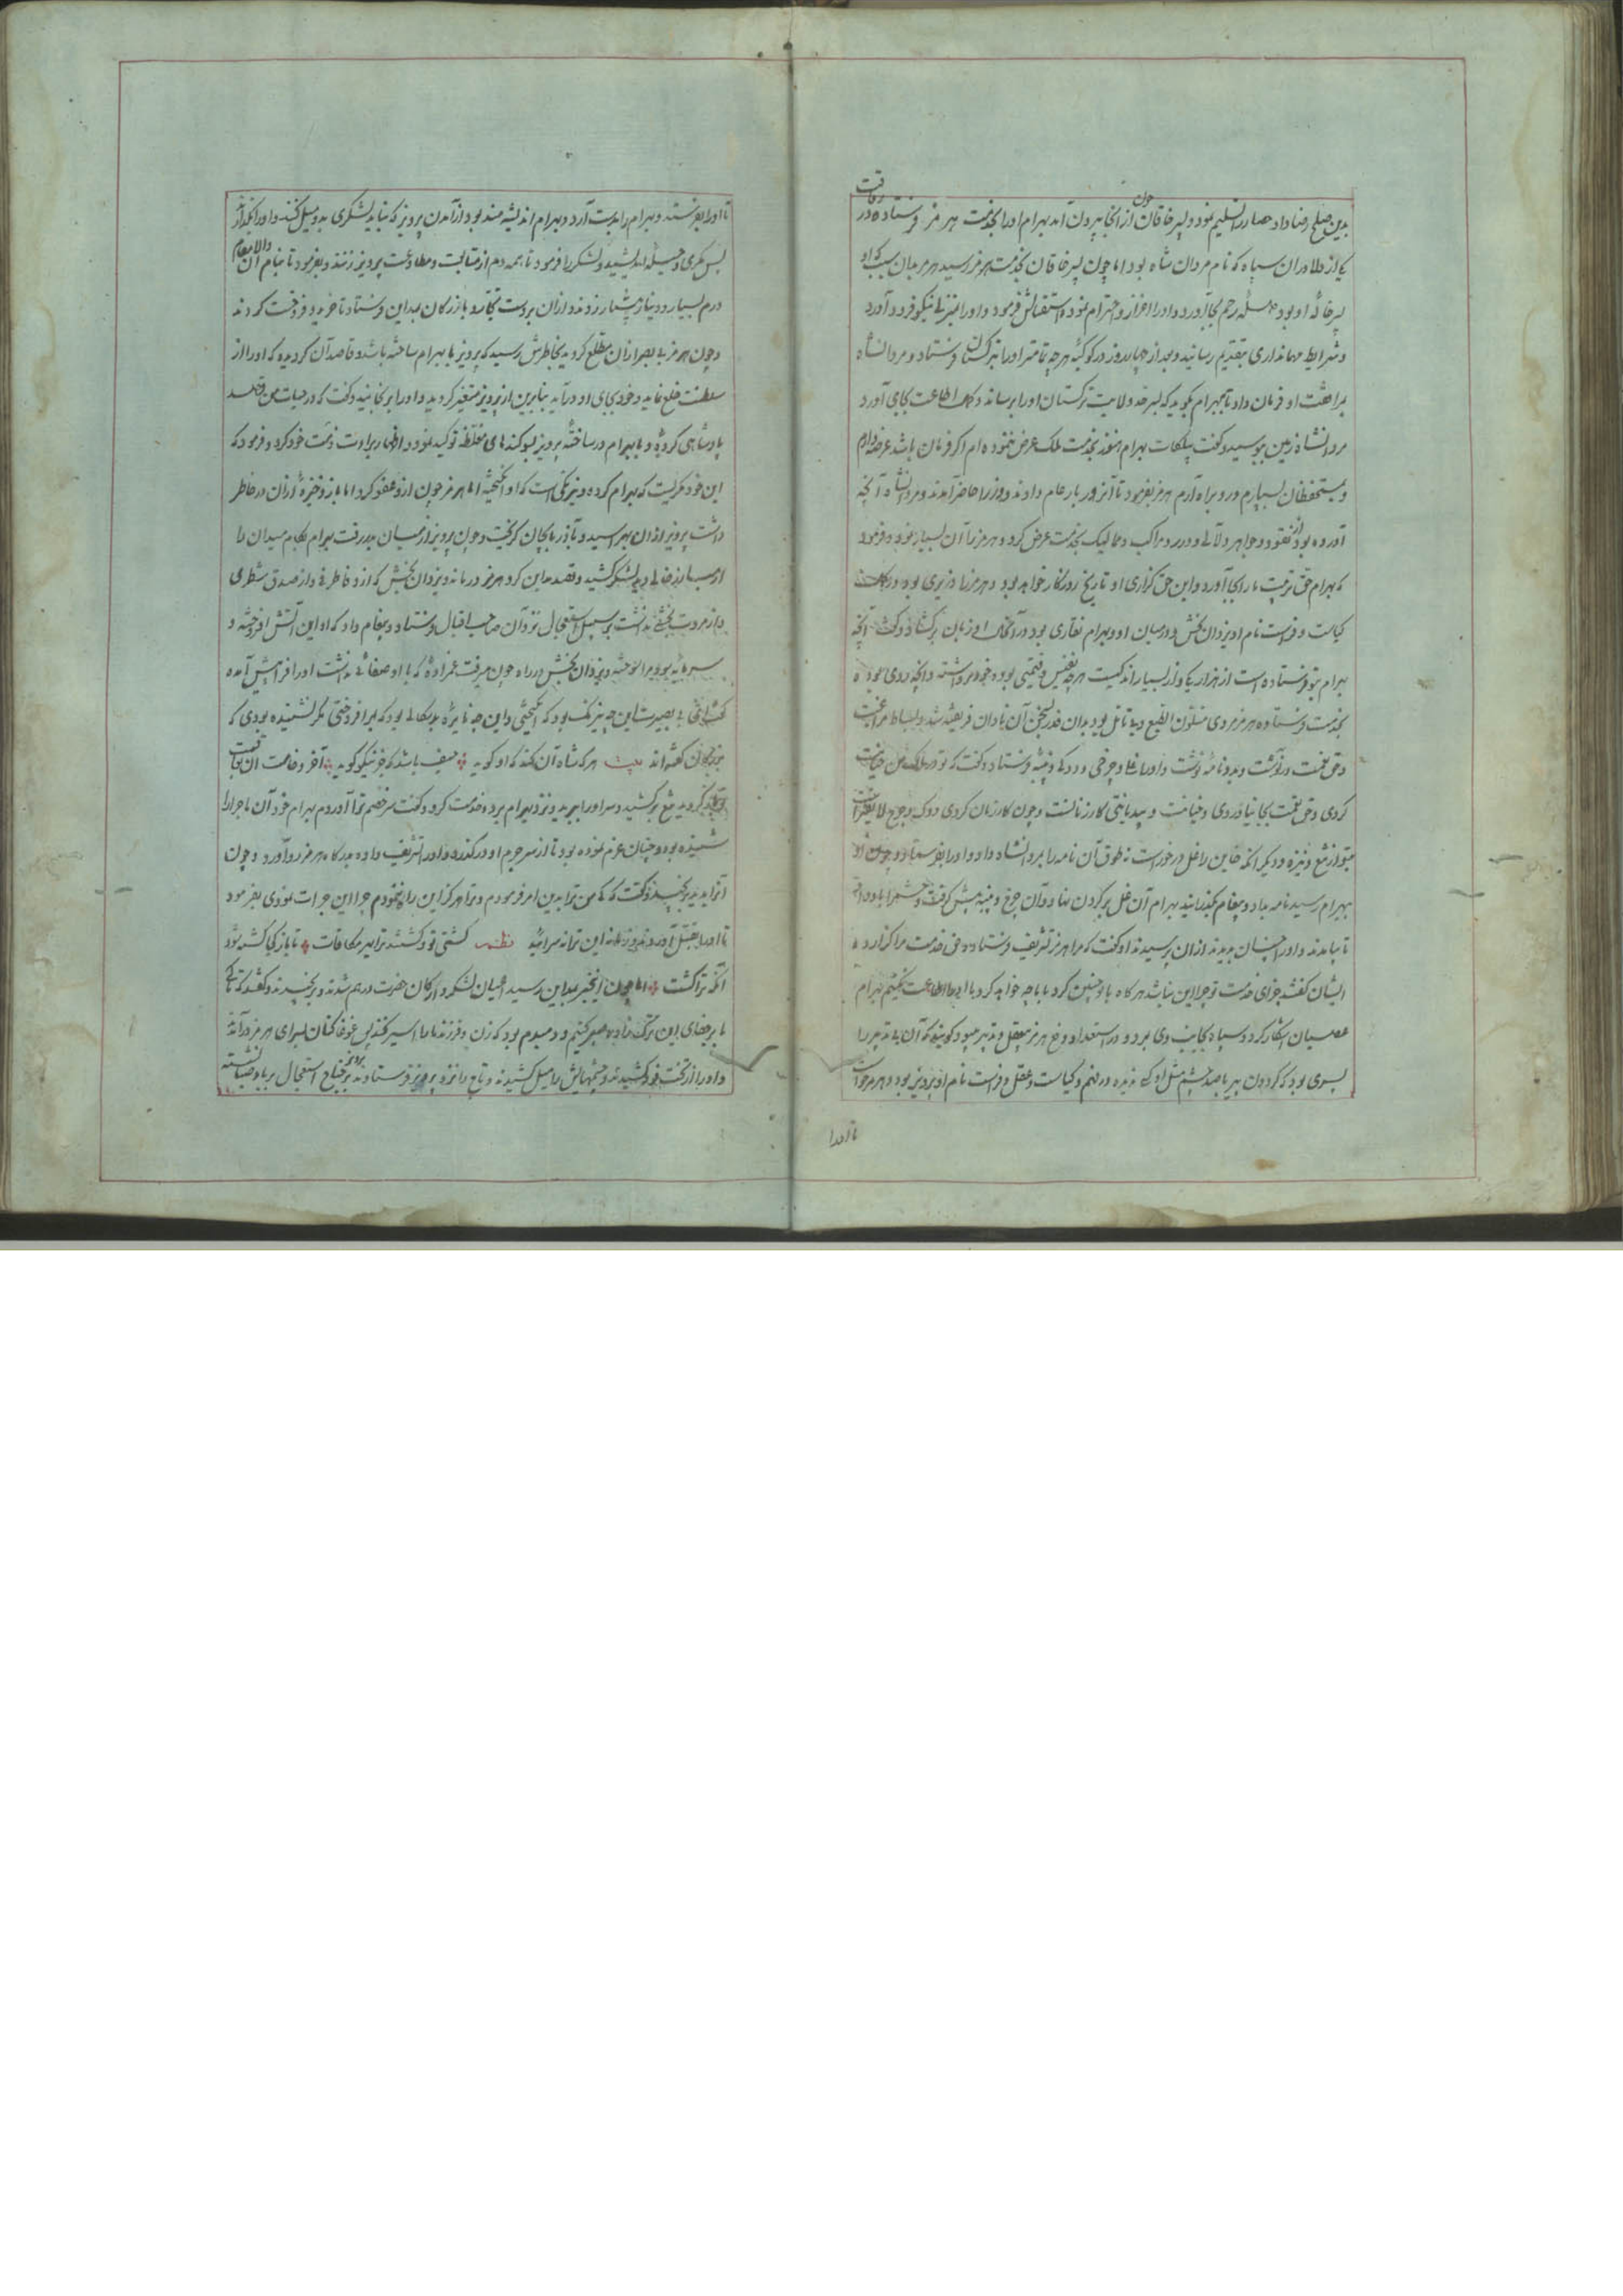 بدین صلح رضا داد و حصار را تسلیم نمود و پسر خاقان چون از انجا بیرون آمد بهرام او را بخدمت هرمز فرستاد و در رفاقت
یکی از دلاوران سپاه که نام مردان شاه بود اما چون پسر خاقان بخدمت هرمز رسید هرمز بدان سبب که او
پسر خاله او بود صله رحم بجا آورد و او را اعزاز و احترام نموده استقبالش فرمود و او را بمنزلی نیکو فرود آورد
و شرایط مهمانداری بتقدیم رسانید و بعد از چهل روز در کوکبه هر چه تمامتر او را بترکستان فرستاد و مردانشاه
براى او فرمان داد تا بهرام بگوید که بسرحد ولایت ترکستان او را برساند و اطاعت بجای آورد
مردانشاه زمین ببوسید و گفت پیشکشات بهرام هنوز بخدمت ملک عرض ننموده ام اگر فرمان باشد عرضه دارم
و بمستحفظان بسپارم و رو براه آرم هرمز بفرمود تا آنروز بار عام دادند و وزرا حاضر آمدند و مردانشاه آنچه
آورده بود از نقود و جواهر و لآلی و درر و مراکب و ممالیک بخدمت عرض کرد و هرمز را آن بسیار نمود و فرمود
که بهرام حق تربیت ما را بجا آورد و این حق گزاری او تاریخ روزگار خواهد بود و هرمز را وزیری بود در
کیاست و فراست نام او یزدان بخش و در میان او و بهرام نقاری بود در آنحال او زبان برگشاد و گفت آنچه
بهرام بتو فرستاده است از هزار یکی و از بسیار اندکیست هر چه نفیس و قیمتی بوده خود برداشته و آنچه ردی بود
بخدمت فرستاده هرمز مردی متلون الطبع و بی تامل بود بدان قدر سخن آن نادان فریفته شد و بساط مراعات
و حق نعمت در نوشت و بدو نامه نوشت و او را غلی و چرخی و دوکی و پنبه فرستاد و گفت که تو در ملک من خیانت
کردی و حق نعمت بجا نیاوردی و خیانت و بی دیانتی کار زنانست و چون کار زنان کردی دوک و چرخ لایقتر است
بتو از تیغ و نیزه و دیگر آنکه خاین را غل در خور است نه طوق آن نامه را بمردانشاه داد و او را بفرستاد و چون او
بهرام رسید نامه بداد و پیغام بگذرانید بهرام آن غل بر گردن نهاد و آن چرخ و پنبه پیش گرفت و حشم را بار داد
تا بیامدند و او را چنان بدیدند از آن پرسیدند او گفت که مرا هرمز تشریف فرستاده و حق خدمت مرا گزارده
ایشان گفتند جزای خدمت تو چرا این باشد هر گاه با تو چنین کرد با ما چه خواهد کرد ما او را اطاعت نکنیم بهرام
عصیان آشکار کرد و سپاه بجانب وی برد و در استعداد دفع هرمز بعقل و تدبیر میبود گویند که آن بی تدبیر را
پسری بود که گردون پیر با صد چشم مثل او کم دیده در فهم و کیاست و عقل و فراست نام او پرویز بود و هرمز خواست
تا او را
تا او را بفرستد و بهرام را بدست آرد و بهرام اندیشه مند بود از آمدن پرویز که نباید لشکری بدو میل کنند و او را بگذارند
پس مکری و حیله اندیشید و لشکر را فرمود تا همه دم از متابعت و مطاوعت پرویز زنند و بفرمود تا بنام آن والا مقام
درم بسیار و دینار بیشمار زدند و از آن بر دست تجار و بازرگان بمداین فرستاد تا خرید و فروخت کردند
و چون هرمز بی بصر از آن مطلع گردید بخاطرش رسید که پرویز با بهرام ساخته باشد و قاصد آن گردیده که او را از
سلطنت خلع نماید و خود بجای او در آید بنابرین از پرویز متغیر گردید و او را برنجانید و گفت که در حیات من قصد
پادشاهی کرده و با بهرام در ساخته پرویز بسوگندهای مغلظه توکید نمود و اظهار براوت ذمت خود کرد و فرمود که
این خود مکریست که بهرام کرده و نیرنگی است که او انگیخته اما هرمز چون ازو عفو کرد اما باز ذخیره از آن در خاطر
داشت پرویز از آن بهراسید و بآذربایجان گریخت و چون پرویز از میان بدر رفت بهرام بکام میدان را
از مبارز خالی دید لشکر کشید و قصد مداین کرد هرمز درماند و یزدان بخش که از وفا طرفی و از صدق شطری
و از مروت بخشی نداشت بر سبیل استعجال نزد آن صاحب اقبال فرستاد و پیغام داد که او این آتش افروخته و
سرمایه بود و مرا سوخته و یزدان بخش در راه چون میرفت عمزاده که با او صفائی نداشت او را فراپیش آمده
گفت ای بی بصیرت این چه نیرنگ بود که انگیختی و این چه نایره بدسگالی بود که برافروختی مگر نشنیده بودی که
بزرگان گفته اند بیت هر که شاه آن کند که او گوید حیف باشد که جز نیکو گوید آخر وخامت آن عاقبت
گردید تیغ برکشید و سر او را ببرید و نزد بهرام برد و خدمت کرد و گفت سر خصم ترا آوردم بهرام خود آن ماجرا را
شنیده بود و چنان عزم نموده بود تا از سر جرم او در گذرد و او را تشریف داده بدرگاه هرمز رو آورد و چون
آنرا بدید برنجید و گفت که من ترا بدین امر فرمودم و ترا هرگز این راه ننمودم چرا این جرات نمودی بفرمود
تا او را بقتل آوردند و زمانه این ترانه سرائید نظم کشتی تو و کشتند ترا بهر مکافات تا باز کی کشته شود
آنکه ترا کشت اما چون این خبر بمداین رسید اعیان لشکر و ارکان حضرت درهم شدند و برنجیدند و گفتند که تا کی
ما بر جفای این ترک زاده صبر کنیم و دمبدم بود که زن و فرزند ما را اسیر کنند پس غوغا کنان بسرای هرمز درآمدند
و او را از تخت فرو کشیدند و چشمهایش را میل کشیدند و تاج را نزد پرویز فرستادند پرویز بر جناح استعجال